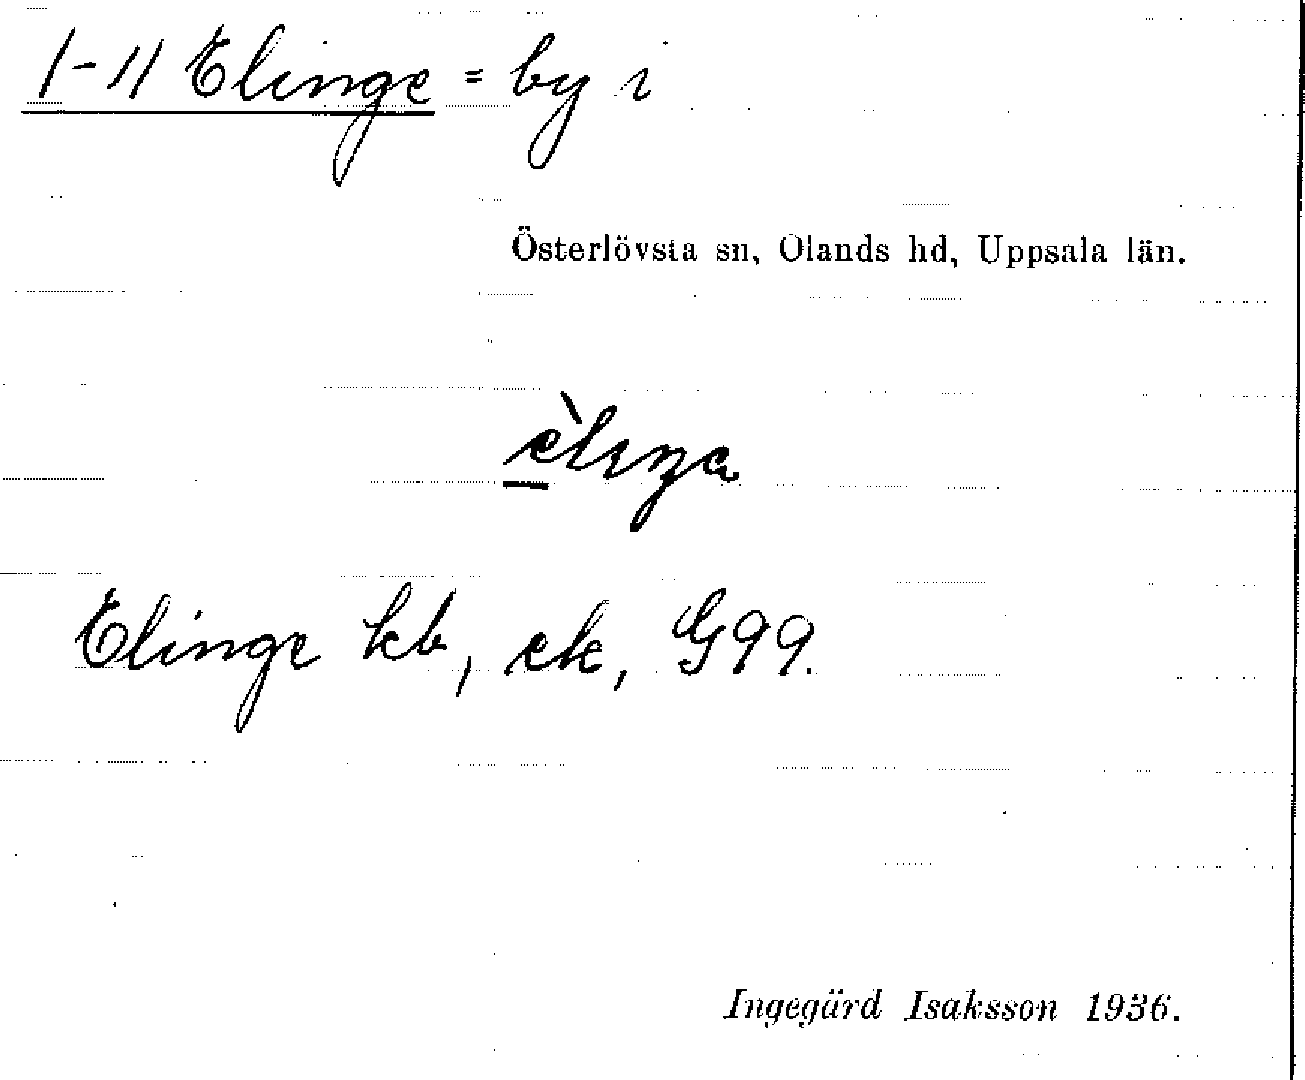 1-11 Elinge = by i
Österlövsta sn, Olands hd, Uppsala län.
Elinge kb, ek, G99.
Ingegärd Isaksson 1936.